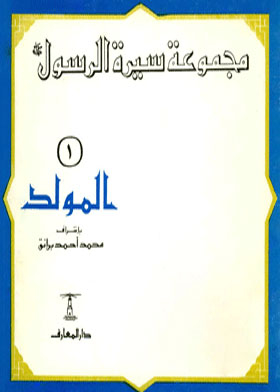 مجموعة سيرة الرسول ﷺ
١
المولد
بإشراف
محمد أحمد برانق
دار المعارف